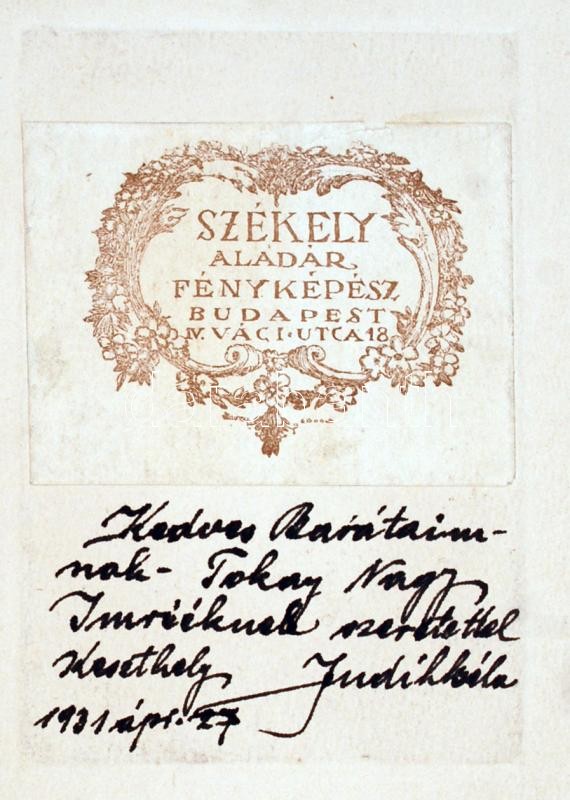 SZÉKELY
ALADÁR
FÉNYKÉPÉSZ
BUDAPEST
IV. VÁCI·UTCA 18
Kedves Barátaim-
nak - Tokay Nagy
Imrééknek szeretettel
Keszthely Judikbéla
1931 ápr. 27